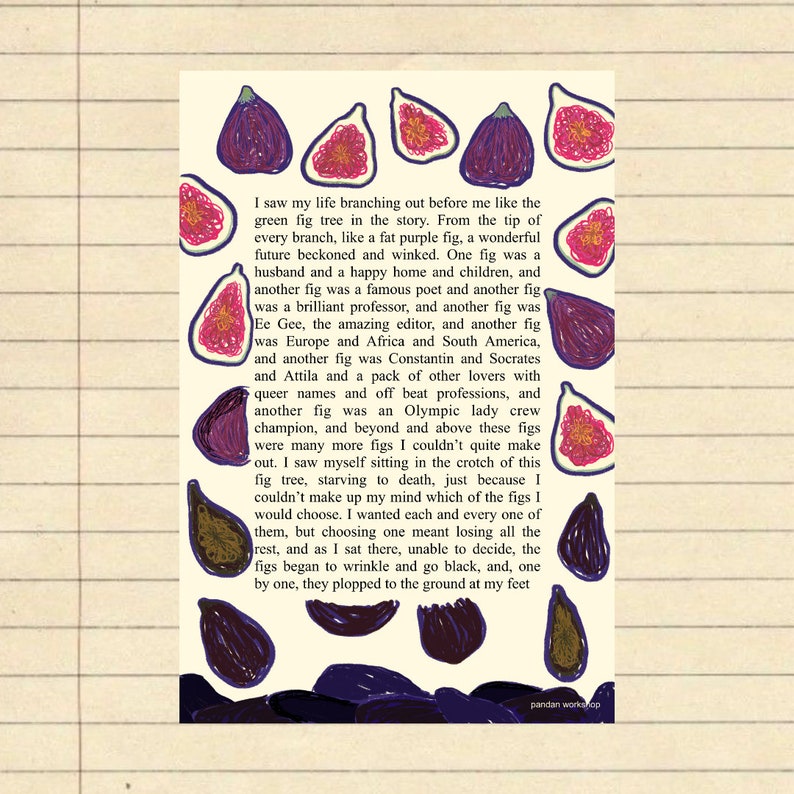 I saw my life branching out before me like the
green fig tree in the story. From the tip of
every branch, like a fat purple fig, a wonderful
future beckoned and winked. One fig was a
husband and a happy home and children, and
another fig was a famous poet and another fig
was a brilliant professor, and another fig was
Ee Gee, the amazing editor, and another fig
was Europe and Africa and South America,
and another fig was Constantin and Socrates
and Attila and a pack of other lovers with
queer names and off beat professions, and
another fig was an Olympic lady crew
champion, and beyond and above these figs
were many more figs I couldn’t quite make
out. I saw myself sitting in the crotch of this
fig tree, starving to death, just because I
couldn’t make up my mind which of the figs I
would choose. I wanted each and every one of
them, but choosing one meant losing all the
rest, and as I sat there, unable to decide, the
figs began to wrinkle and go black, and, one
by one, they plopped to the ground at my feet
pandan workshop